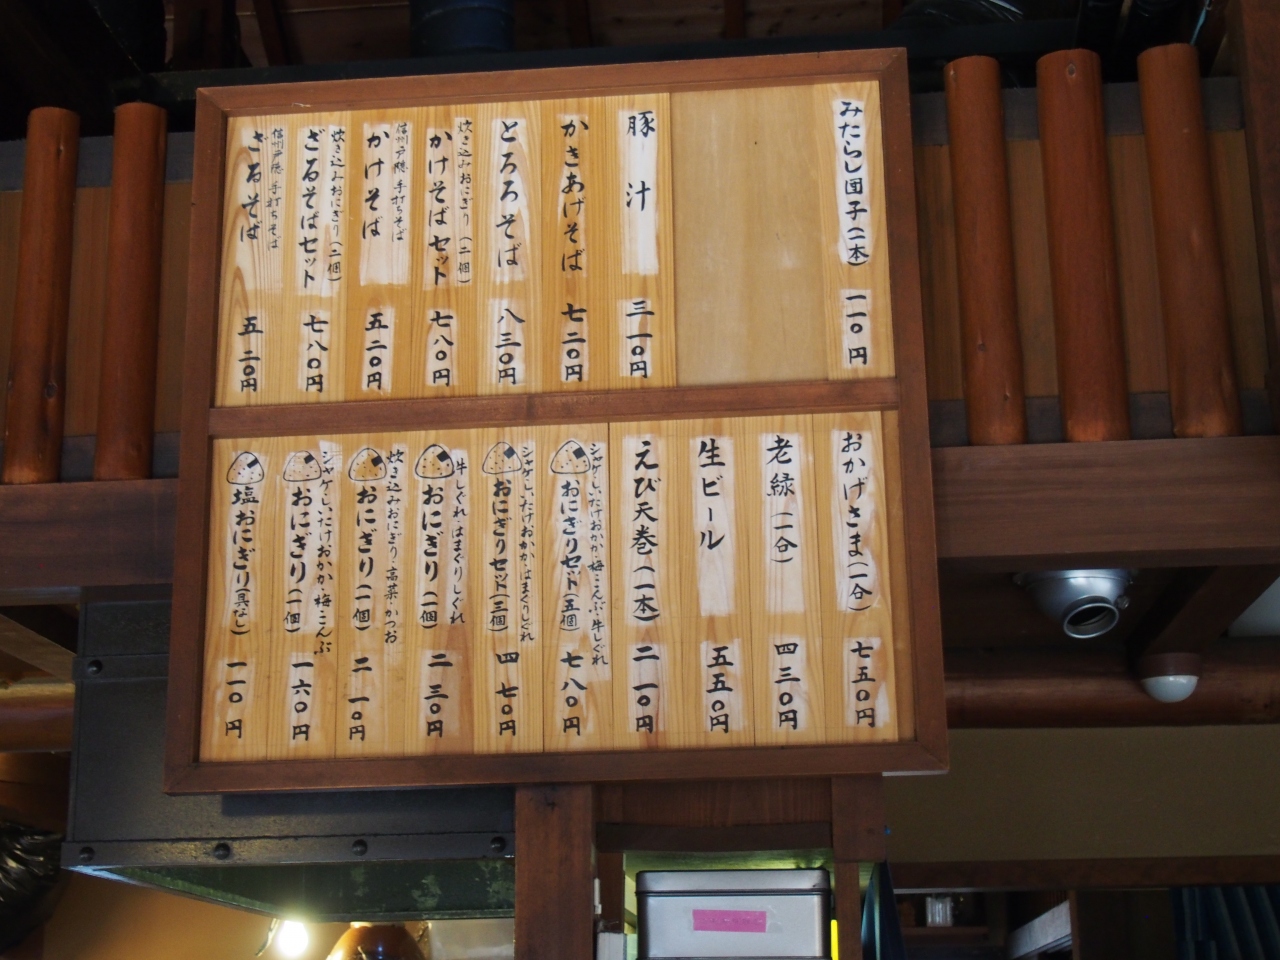 みたらし団子(一本) 一一〇円
豚汁 三一〇円
かきあげそば 七二〇円
とろろそば 八三〇円
炊き込みおにぎり(二個)
かけそばセット 七八〇円
信州戸隠 手打ちそば
かけそば 五二〇円
炊き込みおにぎり(二個)
ざるそばセット 七八〇円
信州戸隠 手打ちそば
ざるそば 五二〇円
おかげさま(一合) 七五〇円
老緑(一合) 四三〇円
生ビール 五五〇円
えび天巻(一本) 二一〇円
シャケ・しいたけおかか・梅・こんぶ・牛しぐれ
おにぎりセット(五個) 七八〇円
シャケ・しいたけおかか・はまぐりしぐれ
おにぎりセット(三個) 四七〇円
牛しぐれ・はまぐりしぐれ
おにぎり(一個) 二三〇円
炊き込みおにぎり・高菜・かつお
おにぎり(一個) 二一〇円
シャケ・しいたけおかか・梅・こんぶ
おにぎり(一個) 一六〇円
塩おにぎり(具なし) 一一〇円